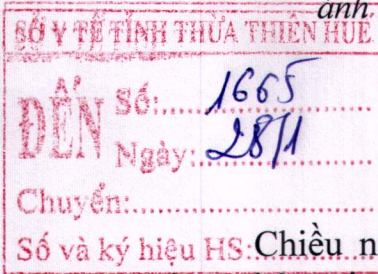 ảnh.
SỞ Y TẾ TỈNH THỪA THIÊN HUẾ
ĐẾN
Số: 1665
Ngày: 28/1
Chuyển:
Số và ký hiệu HS: Chiều n